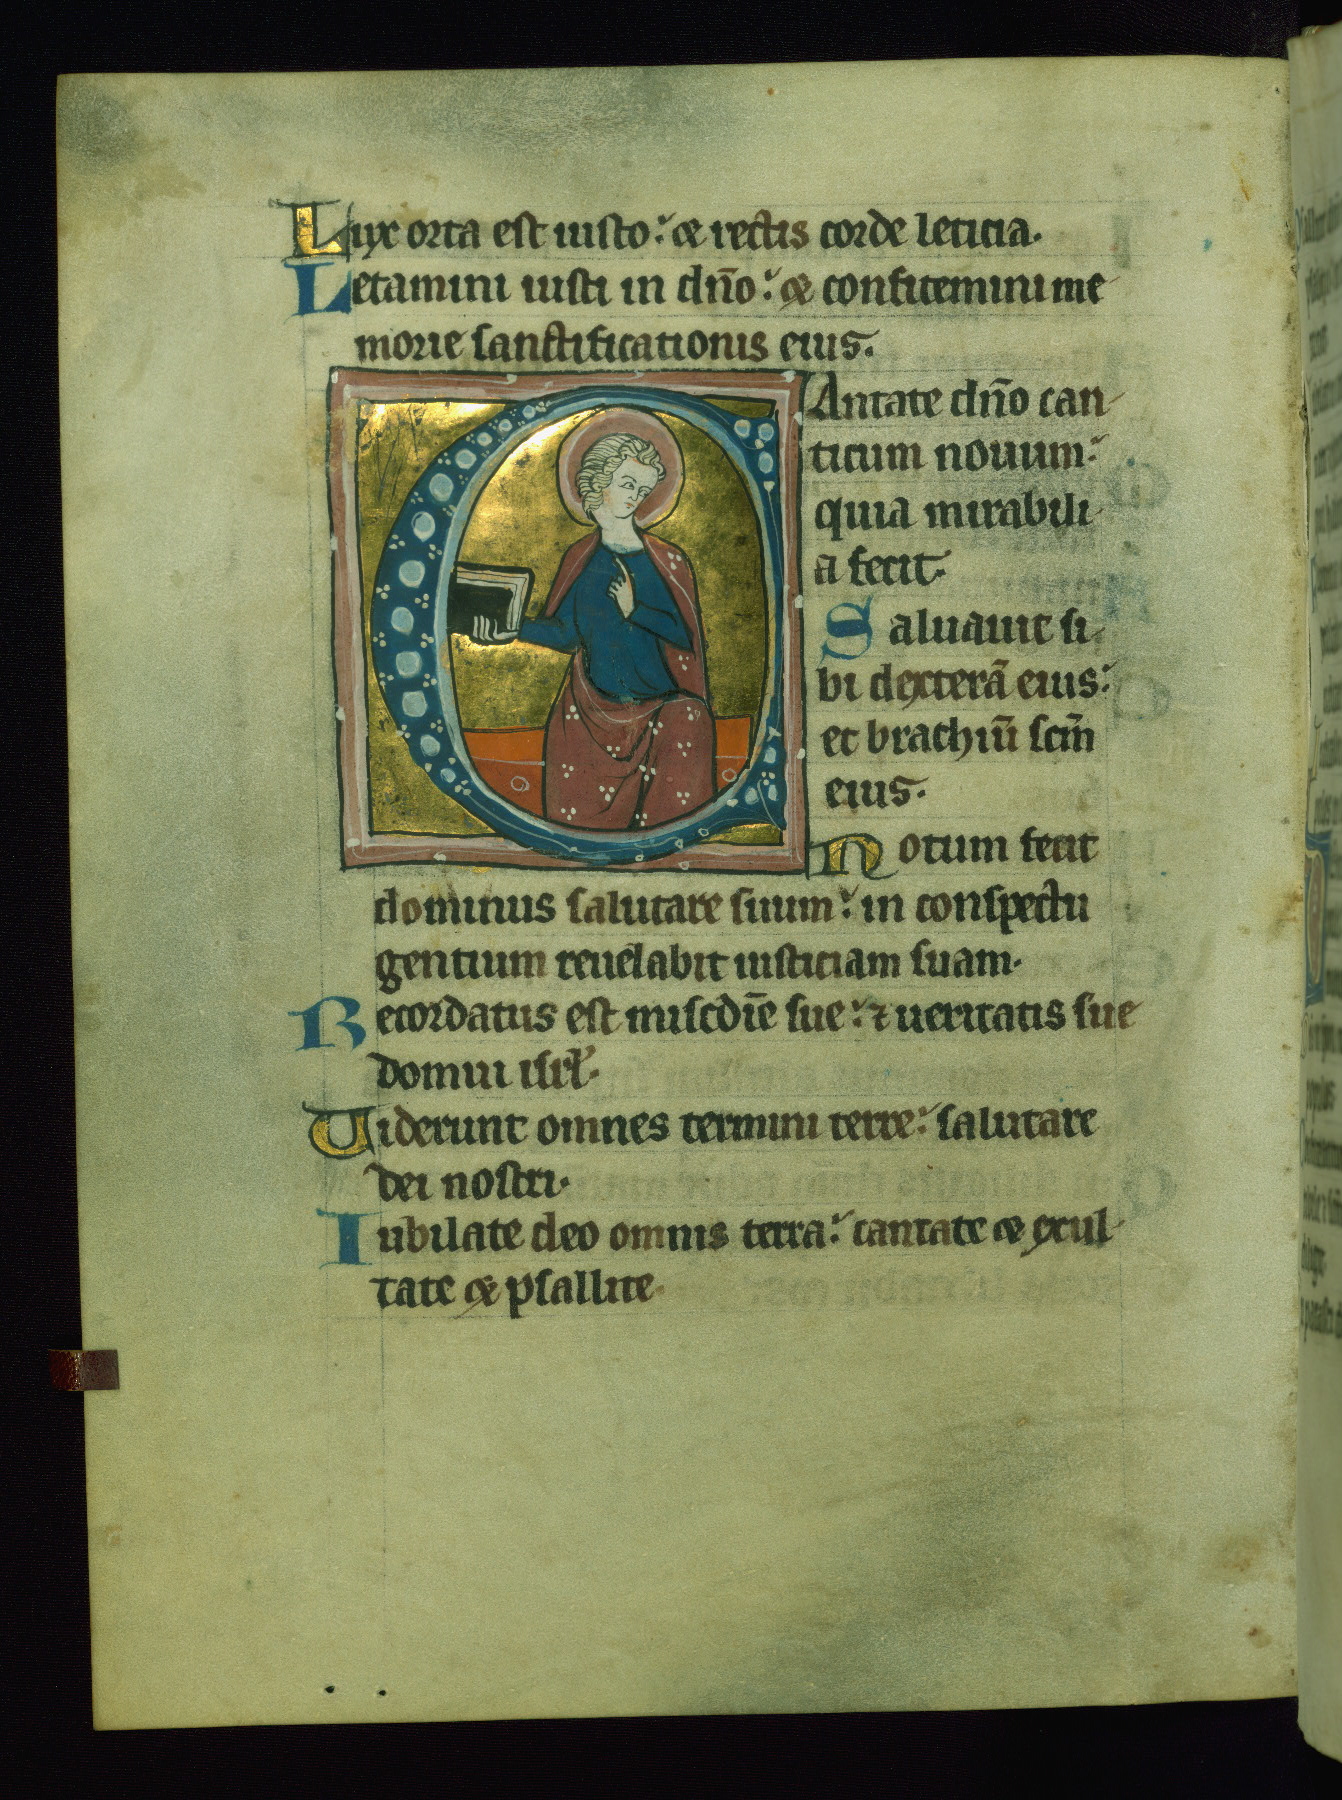 Lux orta est iusto: & rectis corde leticia.
Letamini iusti in dño: & confitemini me
morie sanctificationis eius.
CAntate dño can
ticum nouum:
quia mirabili
a fecit.
Saluauit si
bi dexterā eius:
et brachiū scm̄
eius.
Notum fecit
dominus salutare suum: in conspectu
gentium reuelabit iusticiam suam.
Recordatus est miscdīe sue: ⁊ ueritatis sue
domui isrl̓.
Uiderunt omnes termini terre: salutare
dei nostri.
Iubilate deo omnis terra: cantate & exul
tate & psallite.